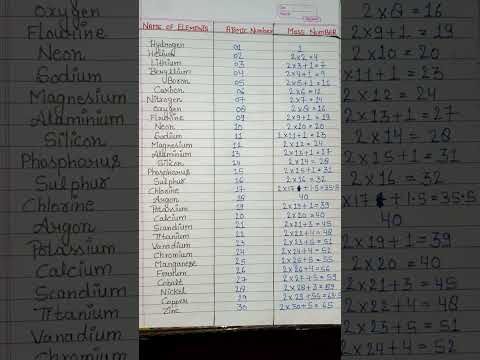 Oxygen
Flourine
Neon
Sodium
Magnesium
Aluminium
Silicon
Phosphorus
Sulphur
Chlorine
Argon
Potassium
Calcium
Scandium
Titanium
Vanadium
Chromium
NAME OF ELEMENTS ATOMIC NUMBER MASS NUMBER
Hydrogen 01 1
Helium 02 2×2=4
Lithium 03 2×3+1=7
Beryllium 04 2×4+1=9
Boron 05 2×5+1=11
Carbon 06 2×6=12
Nitrogen 07 2×7=14
Oxygen 08 2×8=16
Flourine 09 2×9+1=19
Neon 10 2×10=20
Sodium 11 2×11+1=23
Magnesium 12 2×12=24
Aluminium 13 2×13+1=27
Silicon 14 2×14=28
Phosphorus 15 2×15+1=31
Sulphur 16 2×16=32
Chlorine 17 2×17+1.5=35.5
Argon 18 40
Potassium 19 2×19+1=39
Calcium 20 2×20=40
Scandium 21 2×21+3=45
Titanium 22 2×22+4=48
Vanadium 23 2×23+5=51
Chromium 24 2×24+4=52
Manganese 25 2×25+5=55
26 2×26+4=56
Cobalt 27 2×27+5=59
Nickel 28 2×28+3=59
Copper 29
Zinc 30 2×30+5=65
2×8=16
2×9+1=19
2×10=20
2×11+1=23
2×12=24
2×13+1=27
2×14=28
2×15+1=31
2×16=32
×17+1.5=35.5
40
2×19+1=39
2×20=40
2×21+3=45
2×22+4=48
2×23+5=51
2×24+4=52